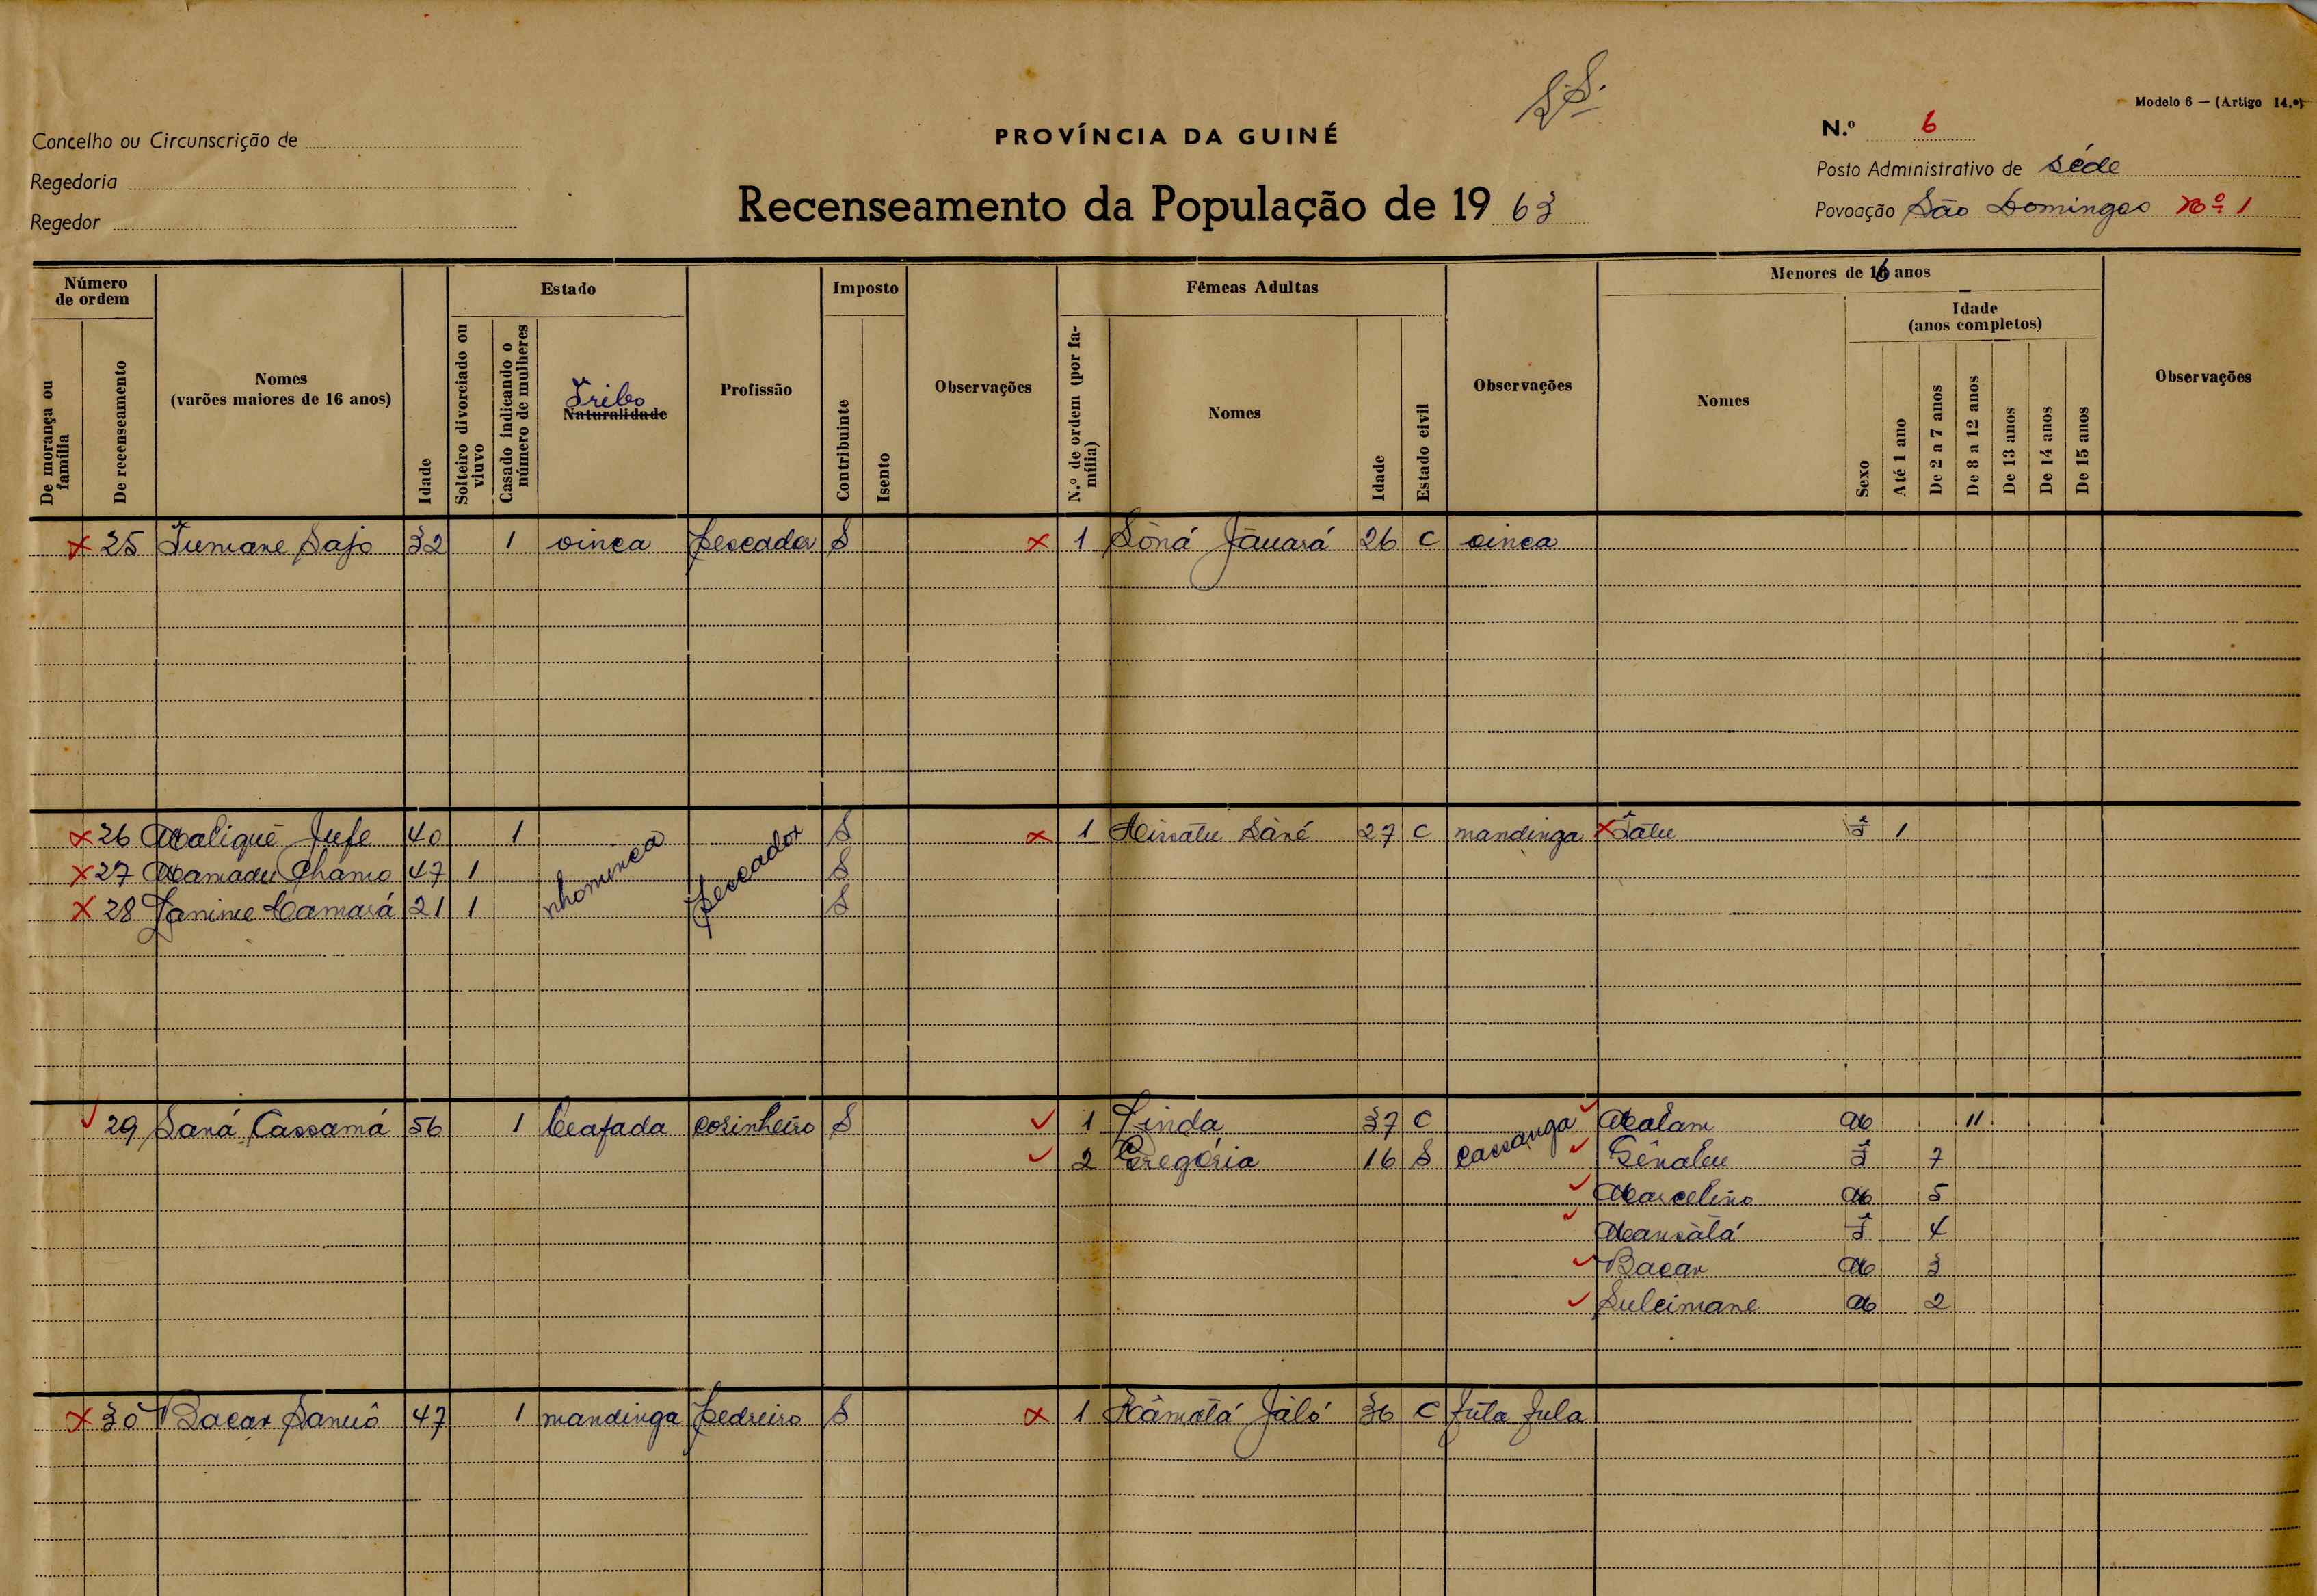 S.S.
Modelo 6 — (Artigo 14.º)
Concelho ou Circunscrição de
PROVÍNCIA DA GUINÉ
N.º 6
Regedoria
Posto Administrativo de Séde
Regedor
Recenseamento da População de 19 63
Povoação São Domingos Nº 1
Número de ordem
De morança ou família
De recenseamento
Nomes
(varões maiores de 16 anos)
Idade
Estado
Solteiro divorciado ou viuvo
Casado indicando o número de mulheres
Tribo
Naturalidade
Profissão
Imposto
Contribuinte
Isento
Observações
Fêmeas Adultas
N.º de ordem (por família)
Nomes
Idade
Estado civil
Observações
Menores de 16 anos
Nomes
Sexo
Idade
(anos completos)
Até 1 ano
De 2 a 7 anos
De 8 a 12 anos
De 13 anos
De 14 anos
De 15 anos
Observações
x 25 Tumane Sajo 32 1 oinca pescador S x 1 Sòná Jàuará 26 C oinca
x 26 Malique Jufe 40 1 nhominca pescador S x 1 Aissatu Sàné 27 C mandinga x Tátu F 1
x 27 Mamadu Chamo 47 1 S
x 28 Janime Camará 21 1 S
29 Saná Cassamá 56 1 beafada cosinheiro S 1 Linda 37 C cassanga Malam M 11
2 Gregória 16 S Gênabu F 7
Marcelino M 5
Mansàtá F 4
Bacar M 3
Suleimane M 2
x 30 Bacar Sanuó 47 1 mandinga pedreiro S x 1 Ràmatá Jàló 36 C futa fula